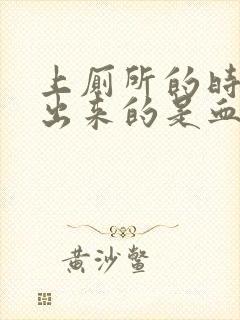 上厕所的时
出来的是血
黄沙鳖